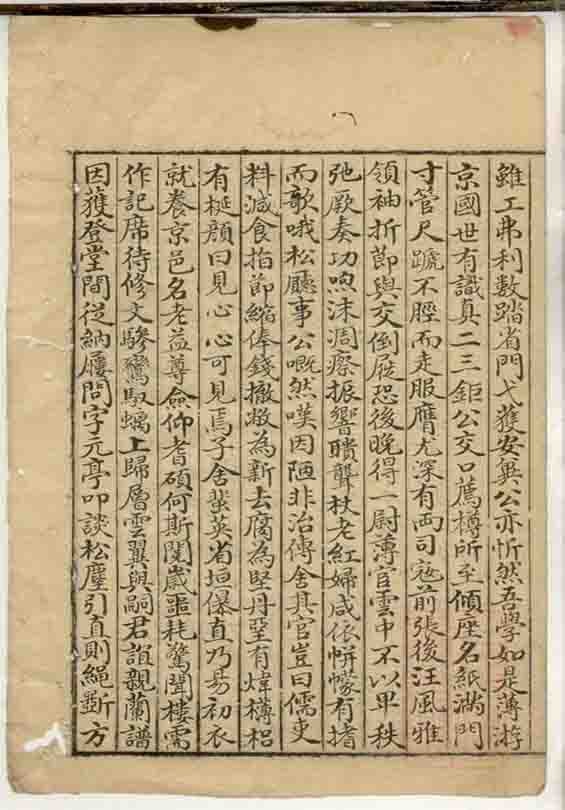 雖工弗利數踏省門弋獲安冀公亦忻然吾學如是薄游
京國世有識真二三鉅公交口薦樽所至傾座名紙滿門
寸管尺蹏不脛而走服膺尤深有両司寇前張後汪風雅
領袖折節與交倒屣恐後晚得一尉薄宦雲中不以卑秩
弛厥奏功呴沫凋瘵振響聵聾杖老紅婦咸依帡幪有揩
而歌哦松廳事公嘅然嘆因陋非治傳舍其官豈曰儒吏
料減食指節縮俸錢撤敝為新去腐為堅丹堊有煒樽梠
有梴顏曰見心心可見焉子舍蜚英省垣㬥直乃易初衣
就養京邑名老益尊僉仰耆碩何斯閼歲噩耗驚聞樓需
作記席待修文驂鸞馭螭上歸層雲翼與嗣君誼親蘭譜
因獲登堂間從納屨問字元亭叩談松麈引直則繩斲方